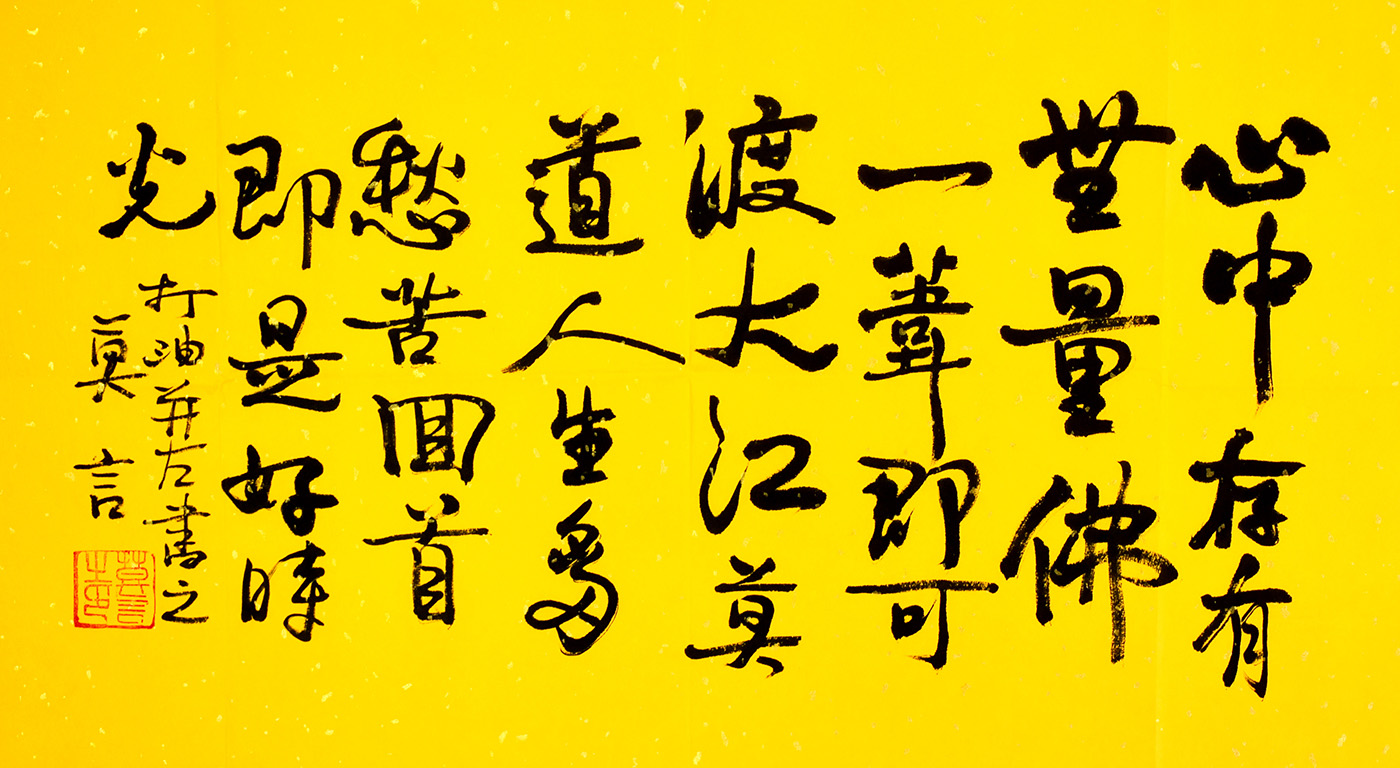 心中存有
無量佛
一葦即可
渡大江莫
道人生多
愁苦回首
即是好時
光
打油并左書之
莫言
莫言之印